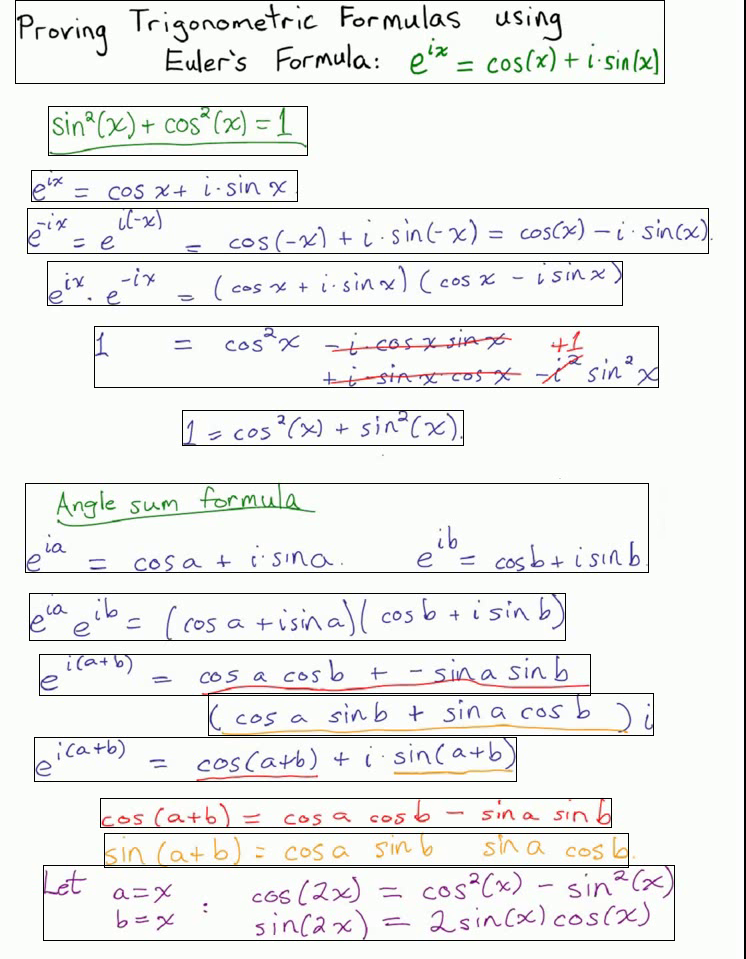 Proving Trigonometric Formulas using
Euler's Formula: e^{ix} = cos(x) + i·sin(x)
sin²(x) + cos²(x) = 1
e^{ix} = cos x + i·sin x
e^{-ix} = e^{i(-x)} = cos(-x) + i·sin(-x) = cos(x) - i·sin(x).
e^{ix}·e^{-ix} = (cos x + i·sin x)(cos x - i sin x)
1 = cos²x - i·cos x sin x +1
+ i·sin x cos x - i² sin²x
1 = cos²(x) + sin²(x).
Angle sum formula
e^{ia} = cos a + i·sin a. e^{ib} = cos b + i sin b.
e^{ia} e^{ib} = (cos a + i sin a)(cos b + i sin b)
e^{i(a+b)} = cos a cos b + - sin a sin b
(cos a sin b + sin a cos b) i
e^{i(a+b)} = cos(a+b) + i·sin(a+b)
cos(a+b) = cos a cos b - sin a sin b
sin(a+b) = cos a sin b sin a cos b.
Let a=x : cos(2x) = cos²(x) - sin²(x)
b=x sin(2x) = 2sin(x)cos(x)